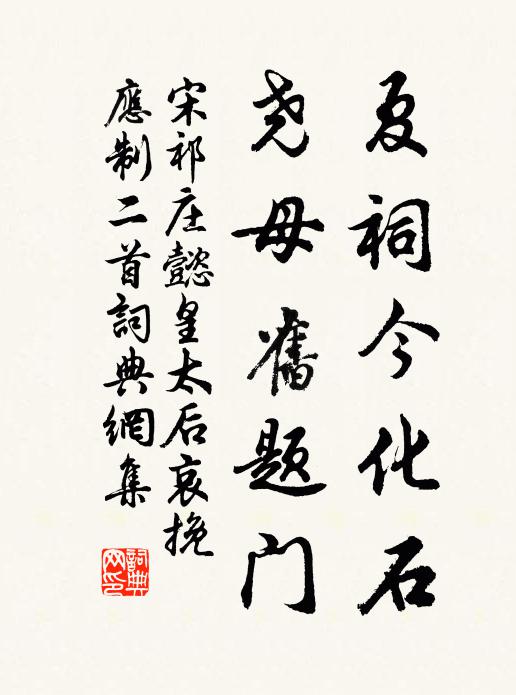 夏祠今化石
尧母舊题门
宋祁庄懿皇太后哀挽
應制二首詞典網集
詞典网印